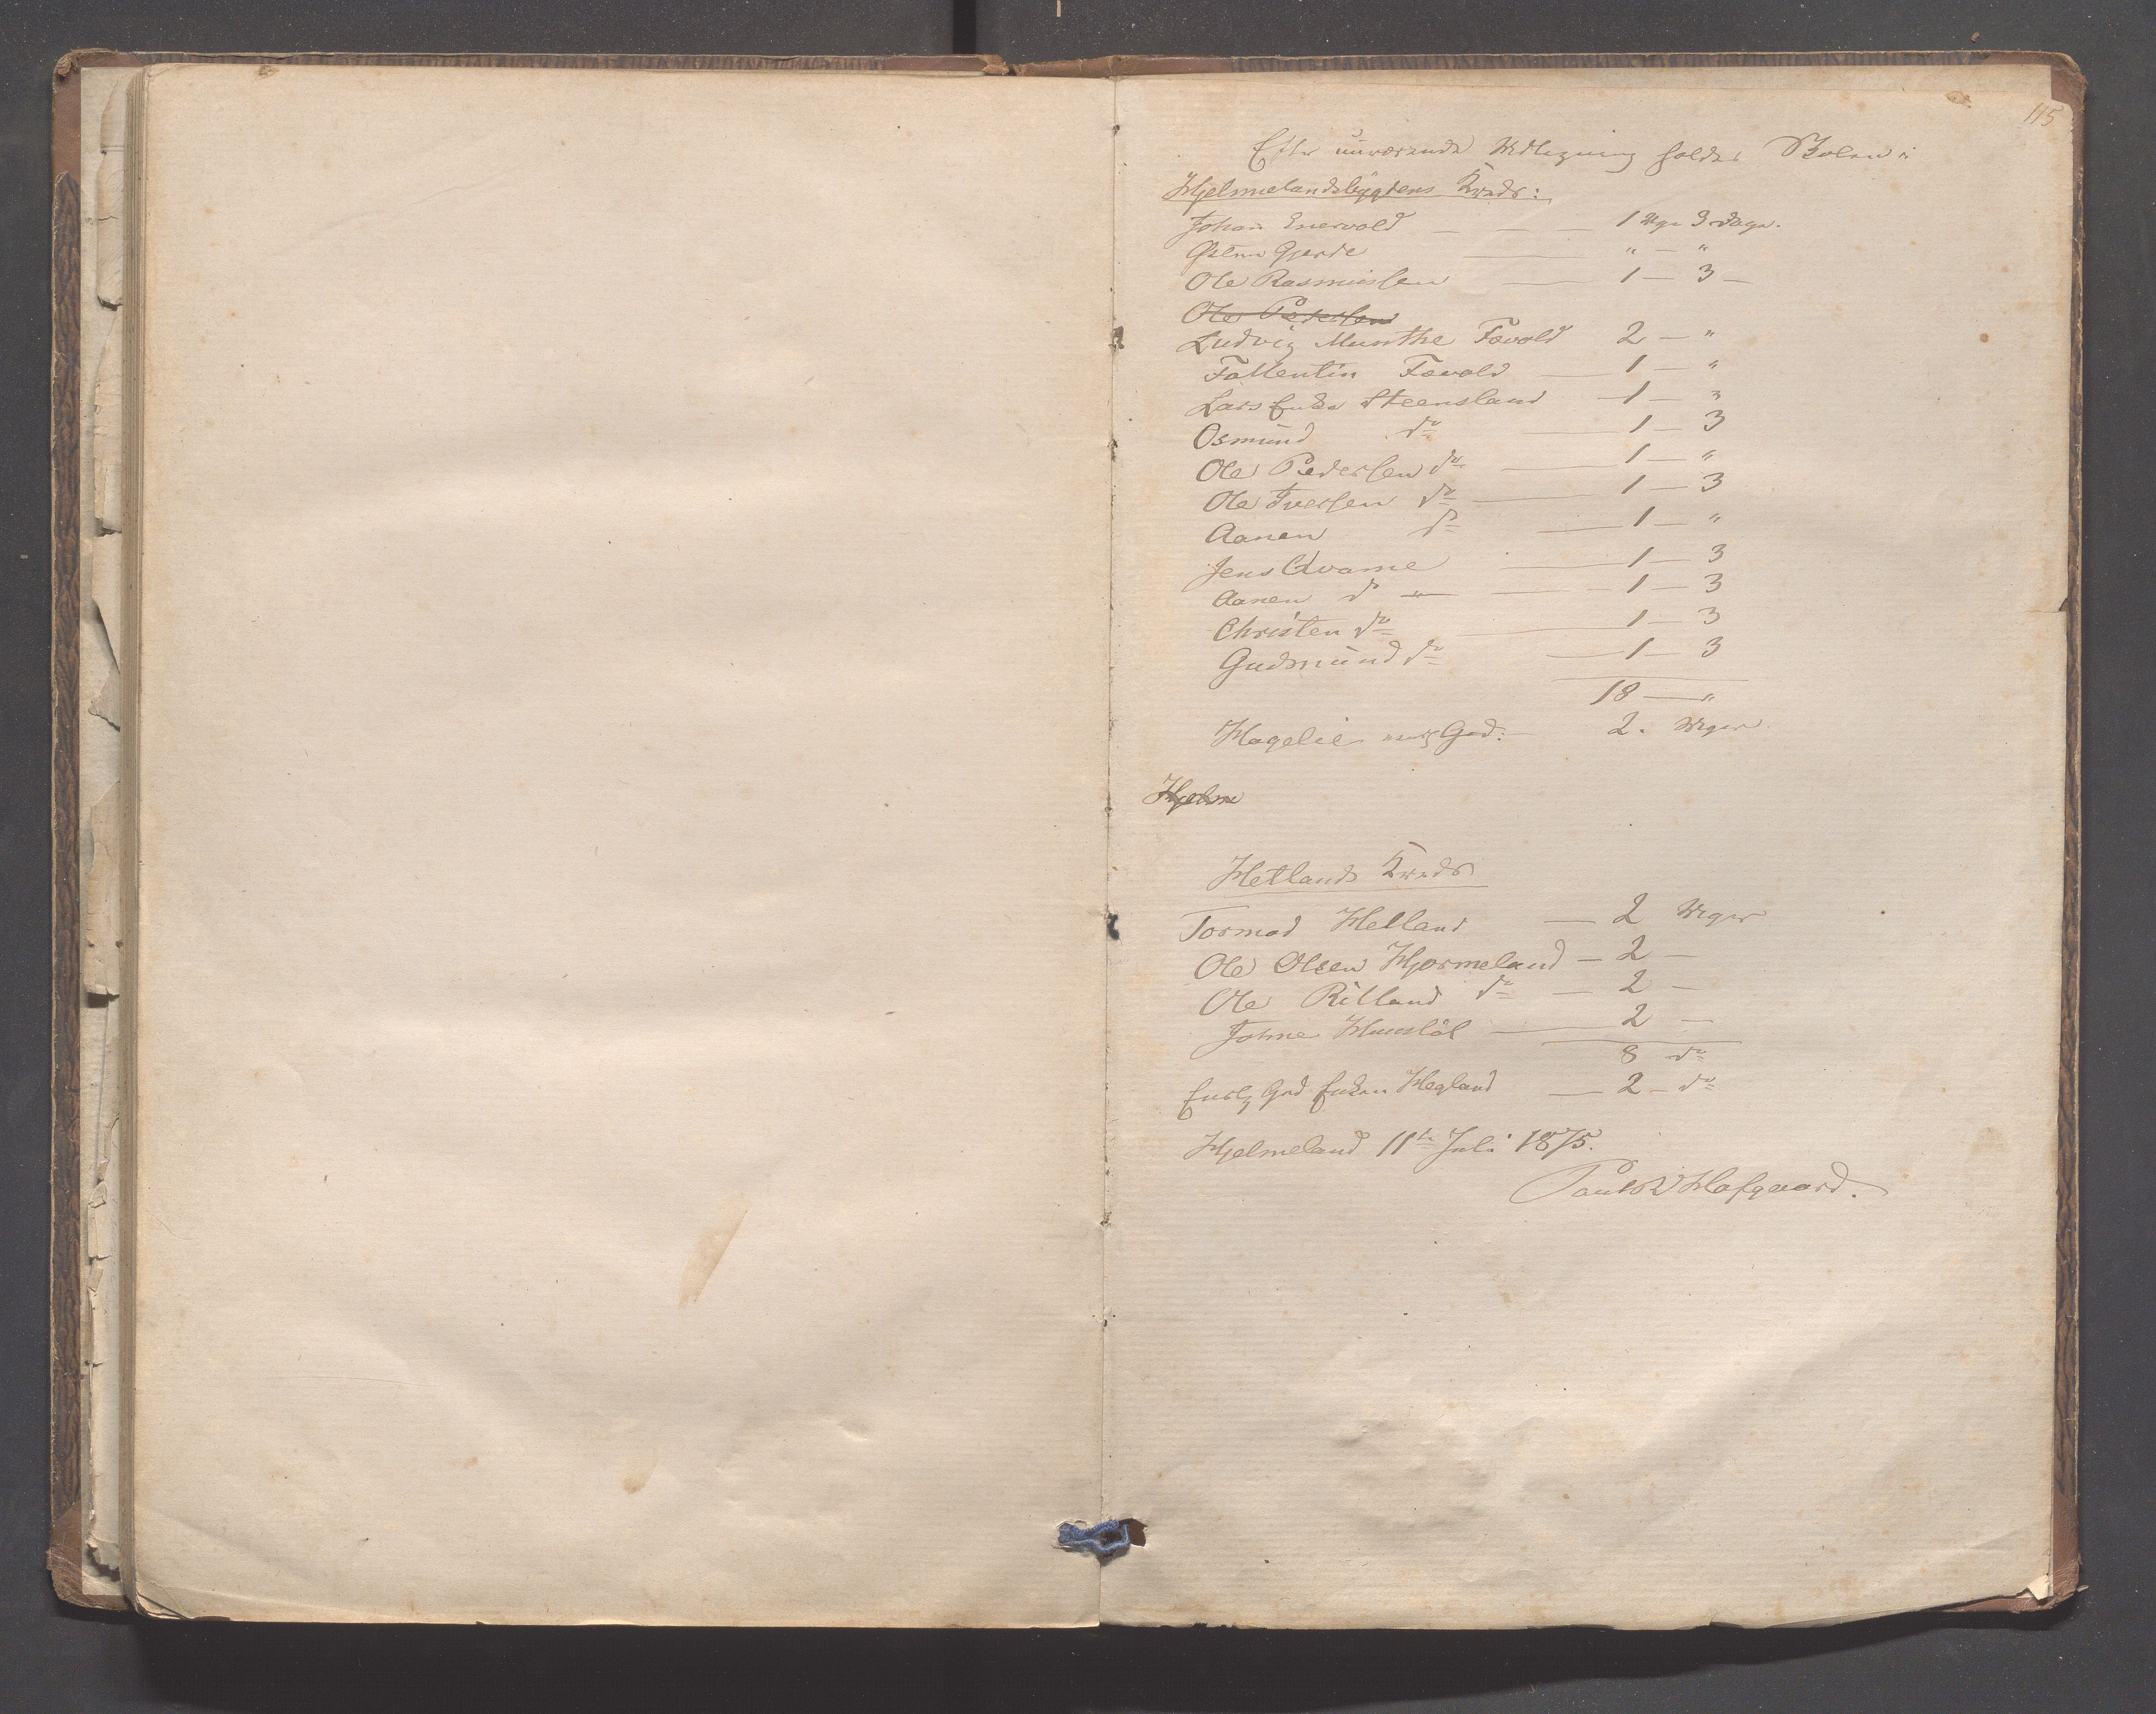 115
Efter nuværende Udligning holdes Skolen i
Hjelmelandsbygdens Kreds:
Johan Enervold — — — 1 Uge 3 Dage.
Østen Gjerde — " — "
Ole Rasmussen — 1 — 3 —
Ole Pedersen
Ludvig Munthe Fævold 2 — "
Fallentin Fævold — 1 — "
Lars Enke Steensland — 1 — "
Osmund do — 1 — 3
Ole Pedersen do — 1 — "
Ole Iversen do — 1 — 3
Aanen do — 1 — "
Jens Qvame — 1 — 3
Aanen do — " — 1 — 3
Christen do — 1 — 3
Gudmund do — 1 — 3
18 — "
Hagelie Gad: — 2. Uger
Hjelm
Hetlands Kreds
Tormod Helland — 2 Uger
Ole Olsen Hjørmeland — 2 —
Ole Riland do — 2 —
Johne — 2 —
8 do
Gad Enken Hegland — 2 — do
Hjelmeland 11te Juli 1875.
Paul Hofgaard.